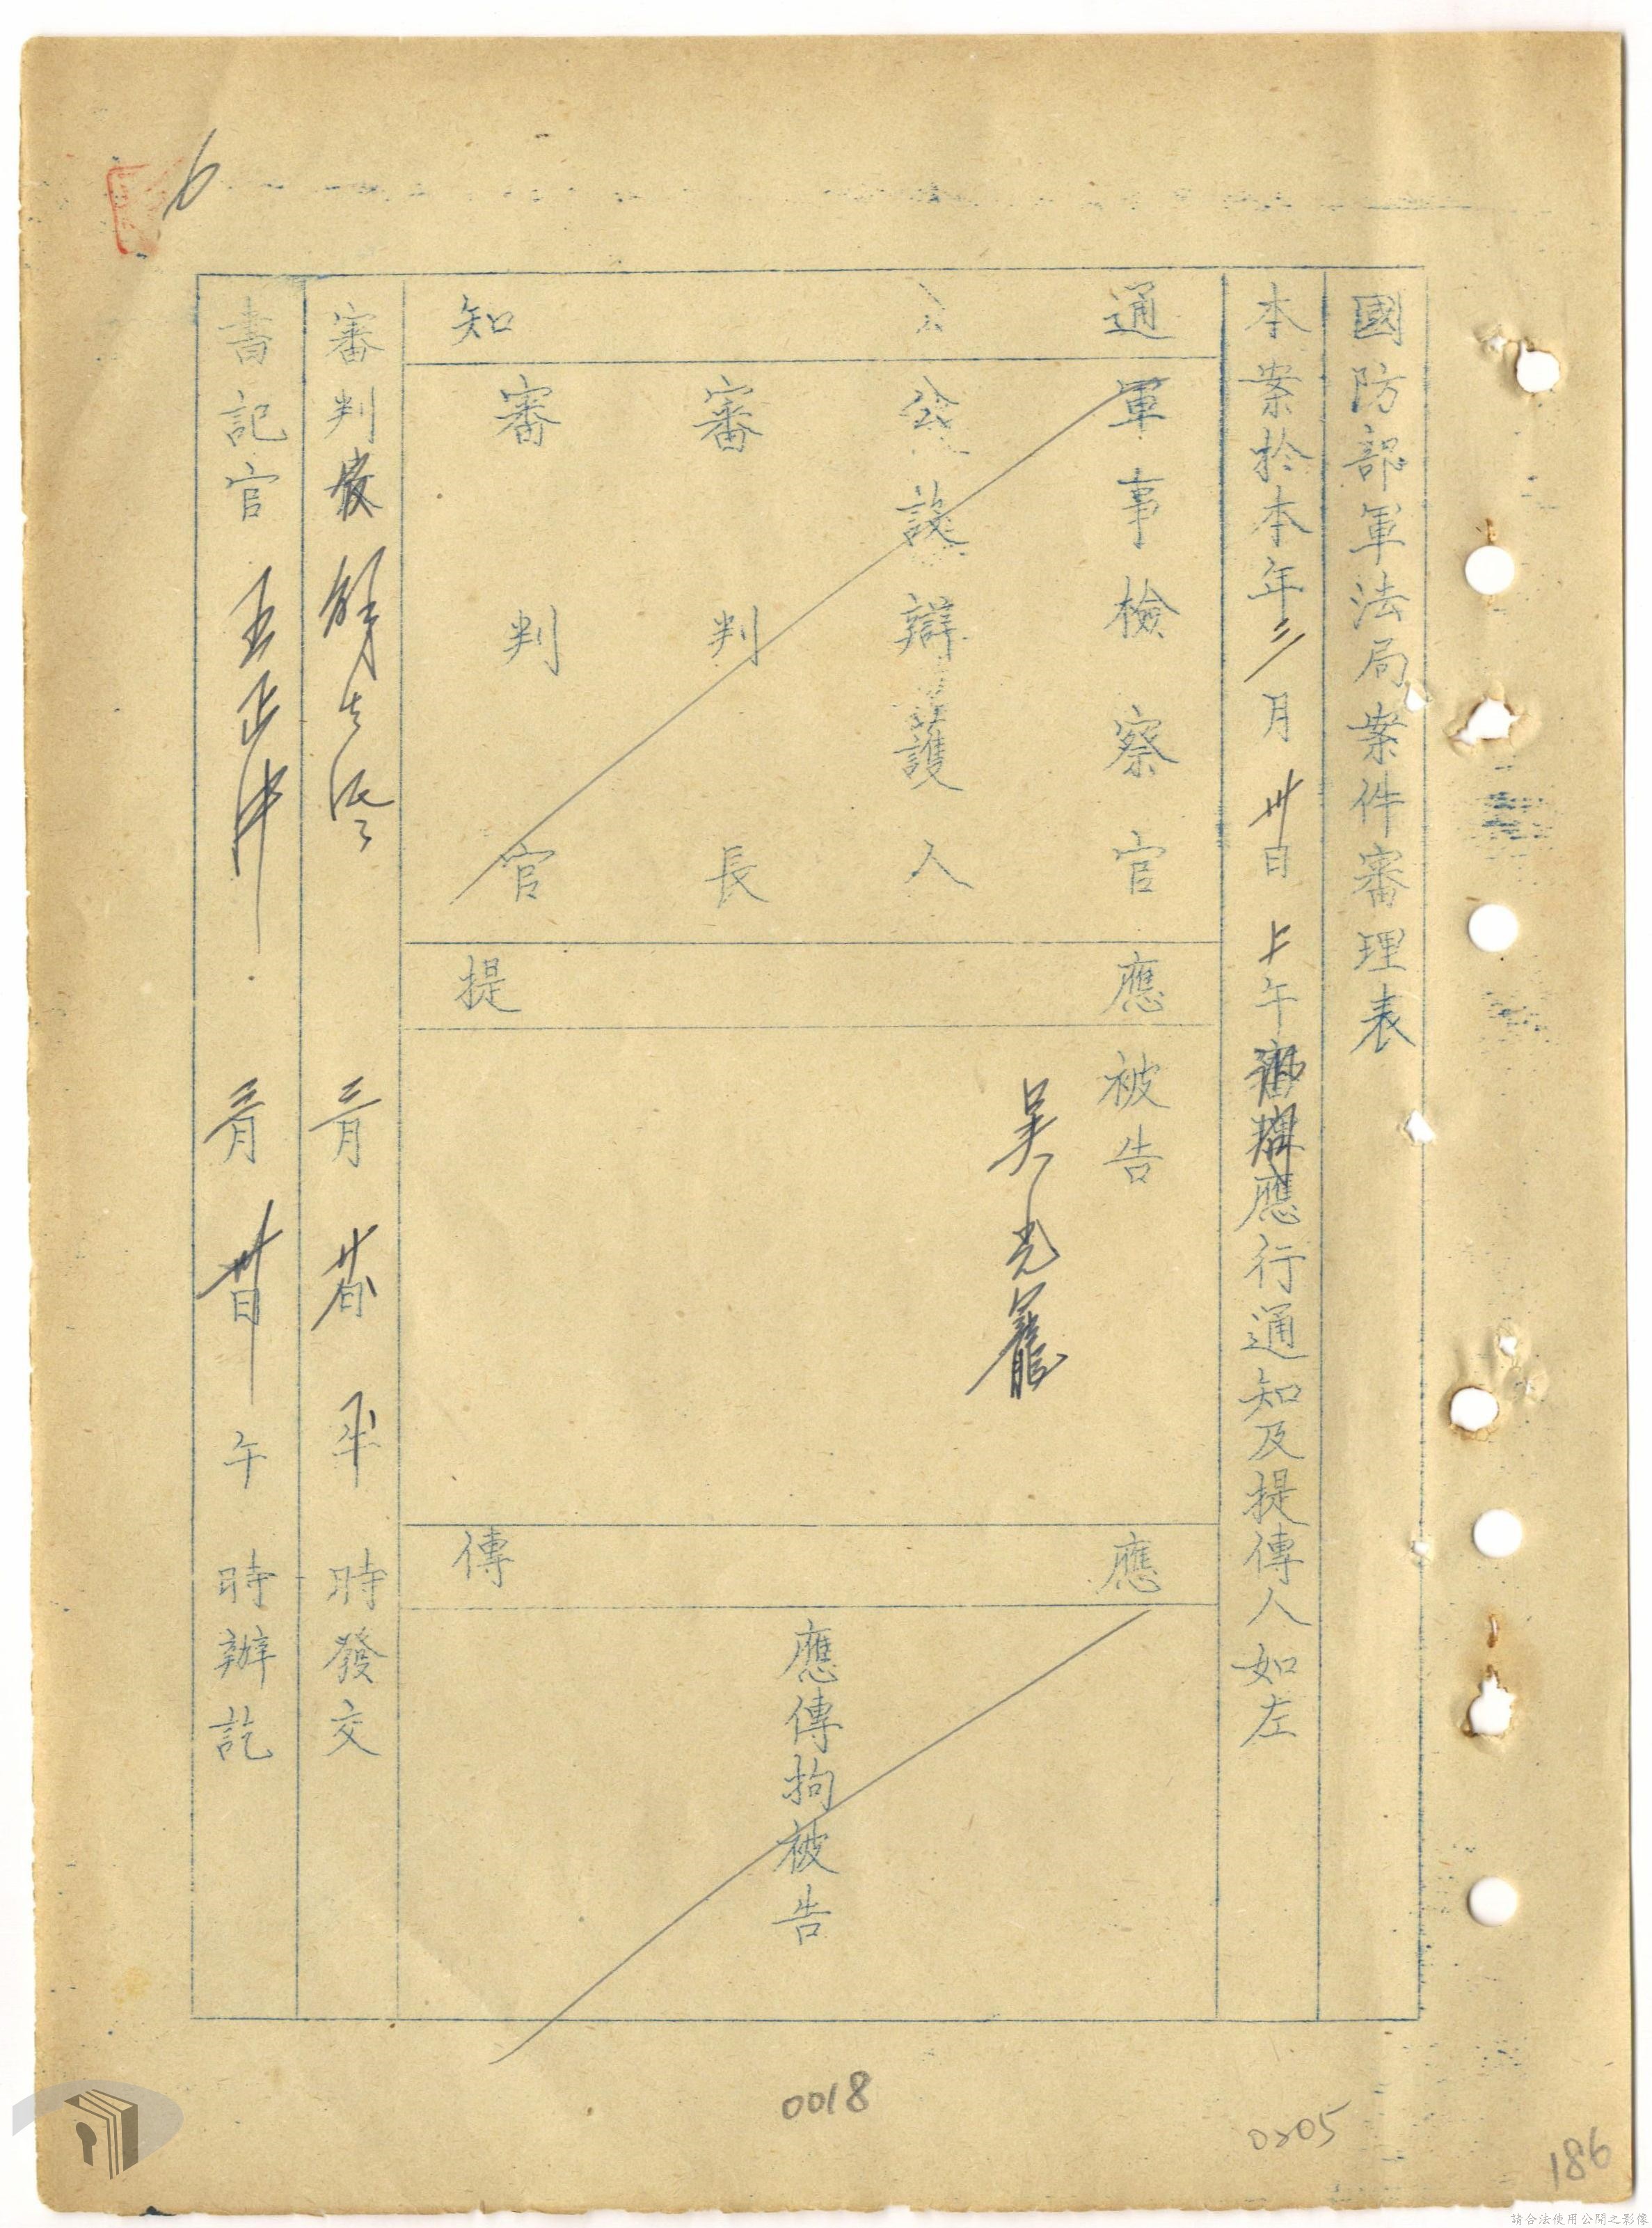 國防部軍法局案件審理表
本案於本年三月卅日上午審理應行通知及提傳人如左
通知
軍事檢察官
公設辯護人
審判長
審判官
應提
被告
吳光
應傳
應傳拘被告
審判官 三月 日 午 時發交
書記官 三月卅日 午 時辦訖
6
0018
0205
186
請合法使用公開之影像